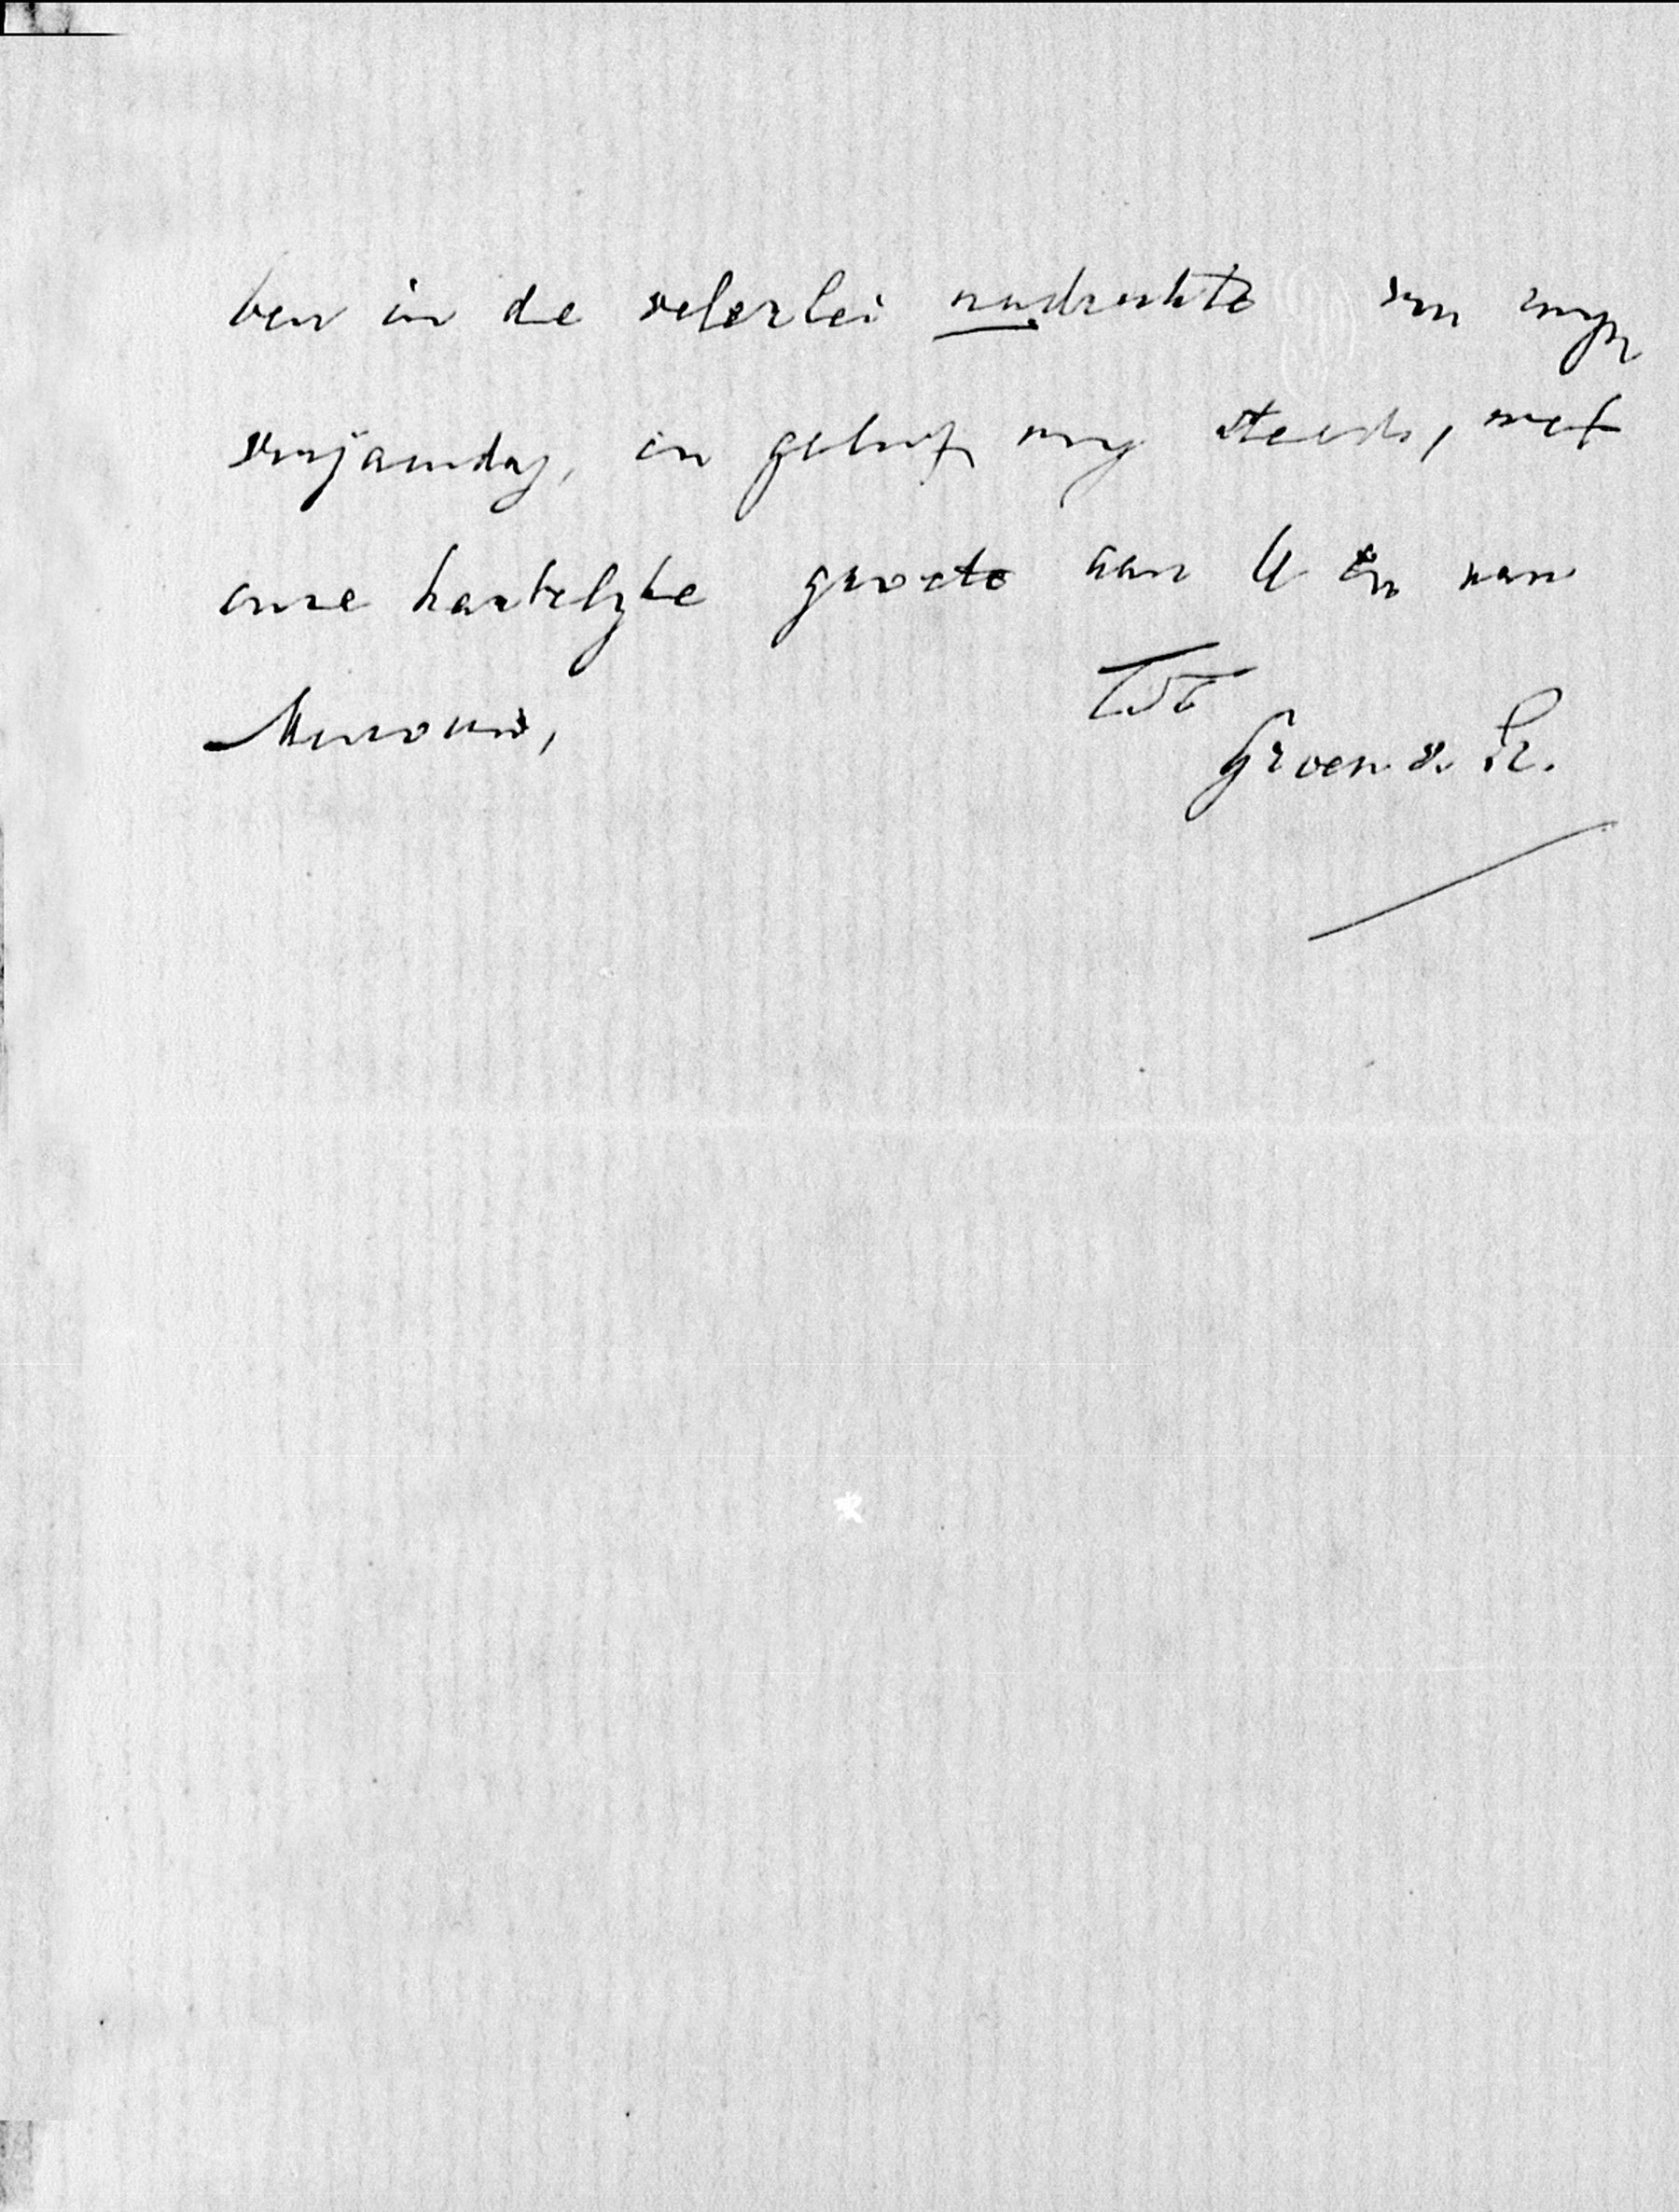 ben in de velerlei nadrukte van mijn
verjaardag, en geloof mij steeds, met
onze hartelijke groete aan U en aan
Mevrouw,
TàT
Groen v. Pr.